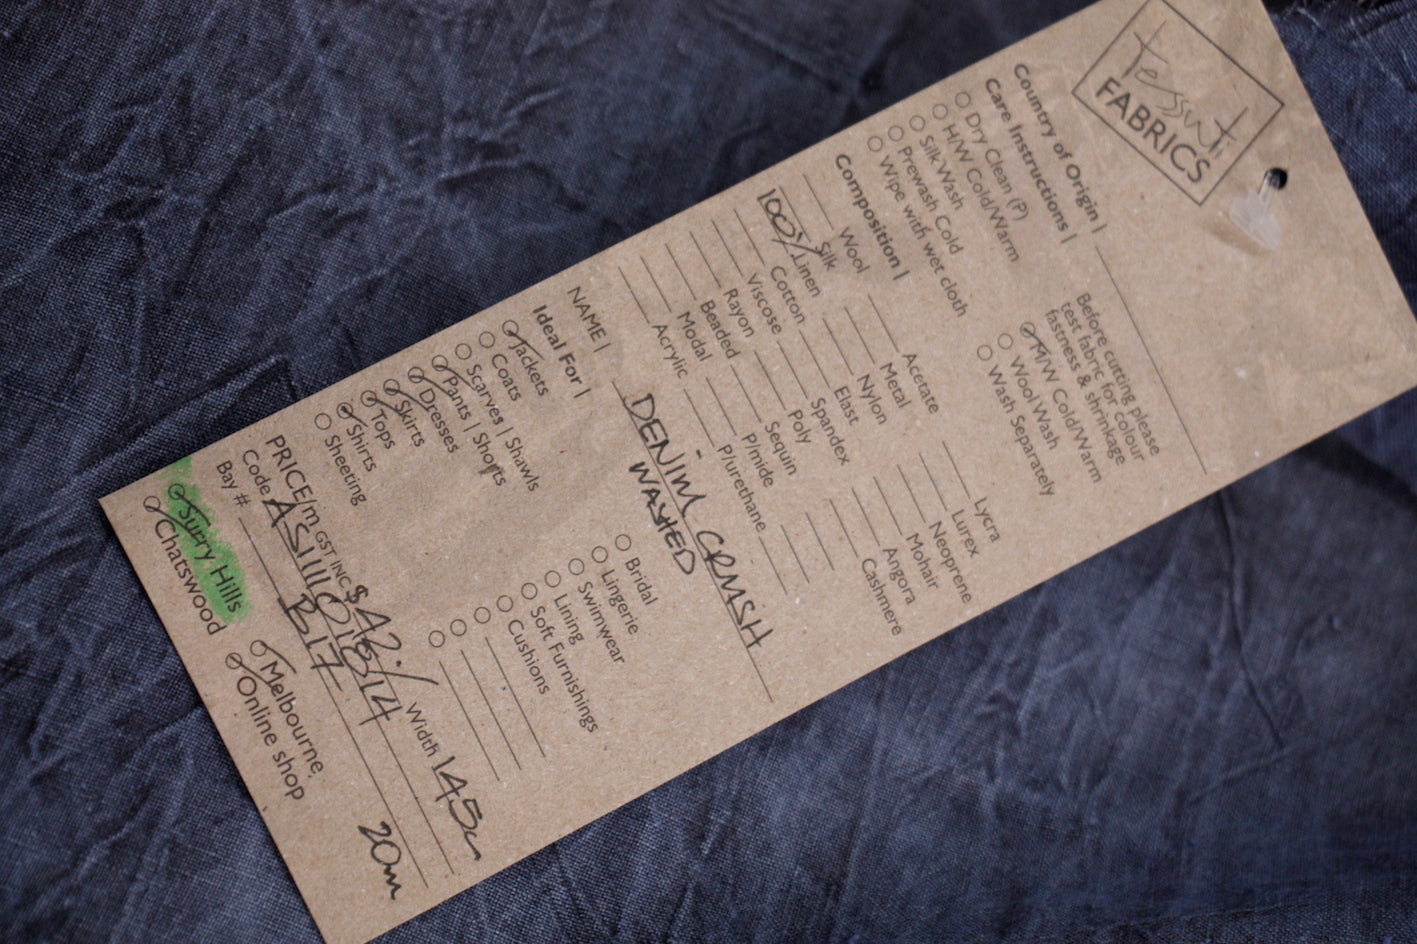 Tessuti
FABRICS
Country of Origin |
Care Instructions |
Dry Clean (P)
H/W Cold/Warm
Silk Wash
Prewash Cold
Wipe with wet cloth
Before cutting please
test fabric for colour
fastness & shrinkage
M/W Cold/Warm
Wool Wash
Wash Separately
Composition |
Wool
Silk
100% Linen
Cotton
Viscose
Rayon
Beaded
Modal
Acrylic
Acetate
Metal
Nylon
Elast
Spandex
Poly
Sequin
P/mide
P/urethane
Lycra
Lurex
Neoprene
Mohair
Angora
Cashmere
NAME | DENIM CRUSH
WASHED
Ideal For |
Jackets
Coats
Scarves | Shawls
Pants | Shorts
Dresses
Skirts
Tops
Shirts
Sheeting
Bridal
Lingerie
Swimwear
Lining
Soft Furnishings
Cushions
PRICE/m GST INC $42./ Width 145c
Code
Bay # B17 20m
Surry Hills
Chatswood
Melbourne
Online shop